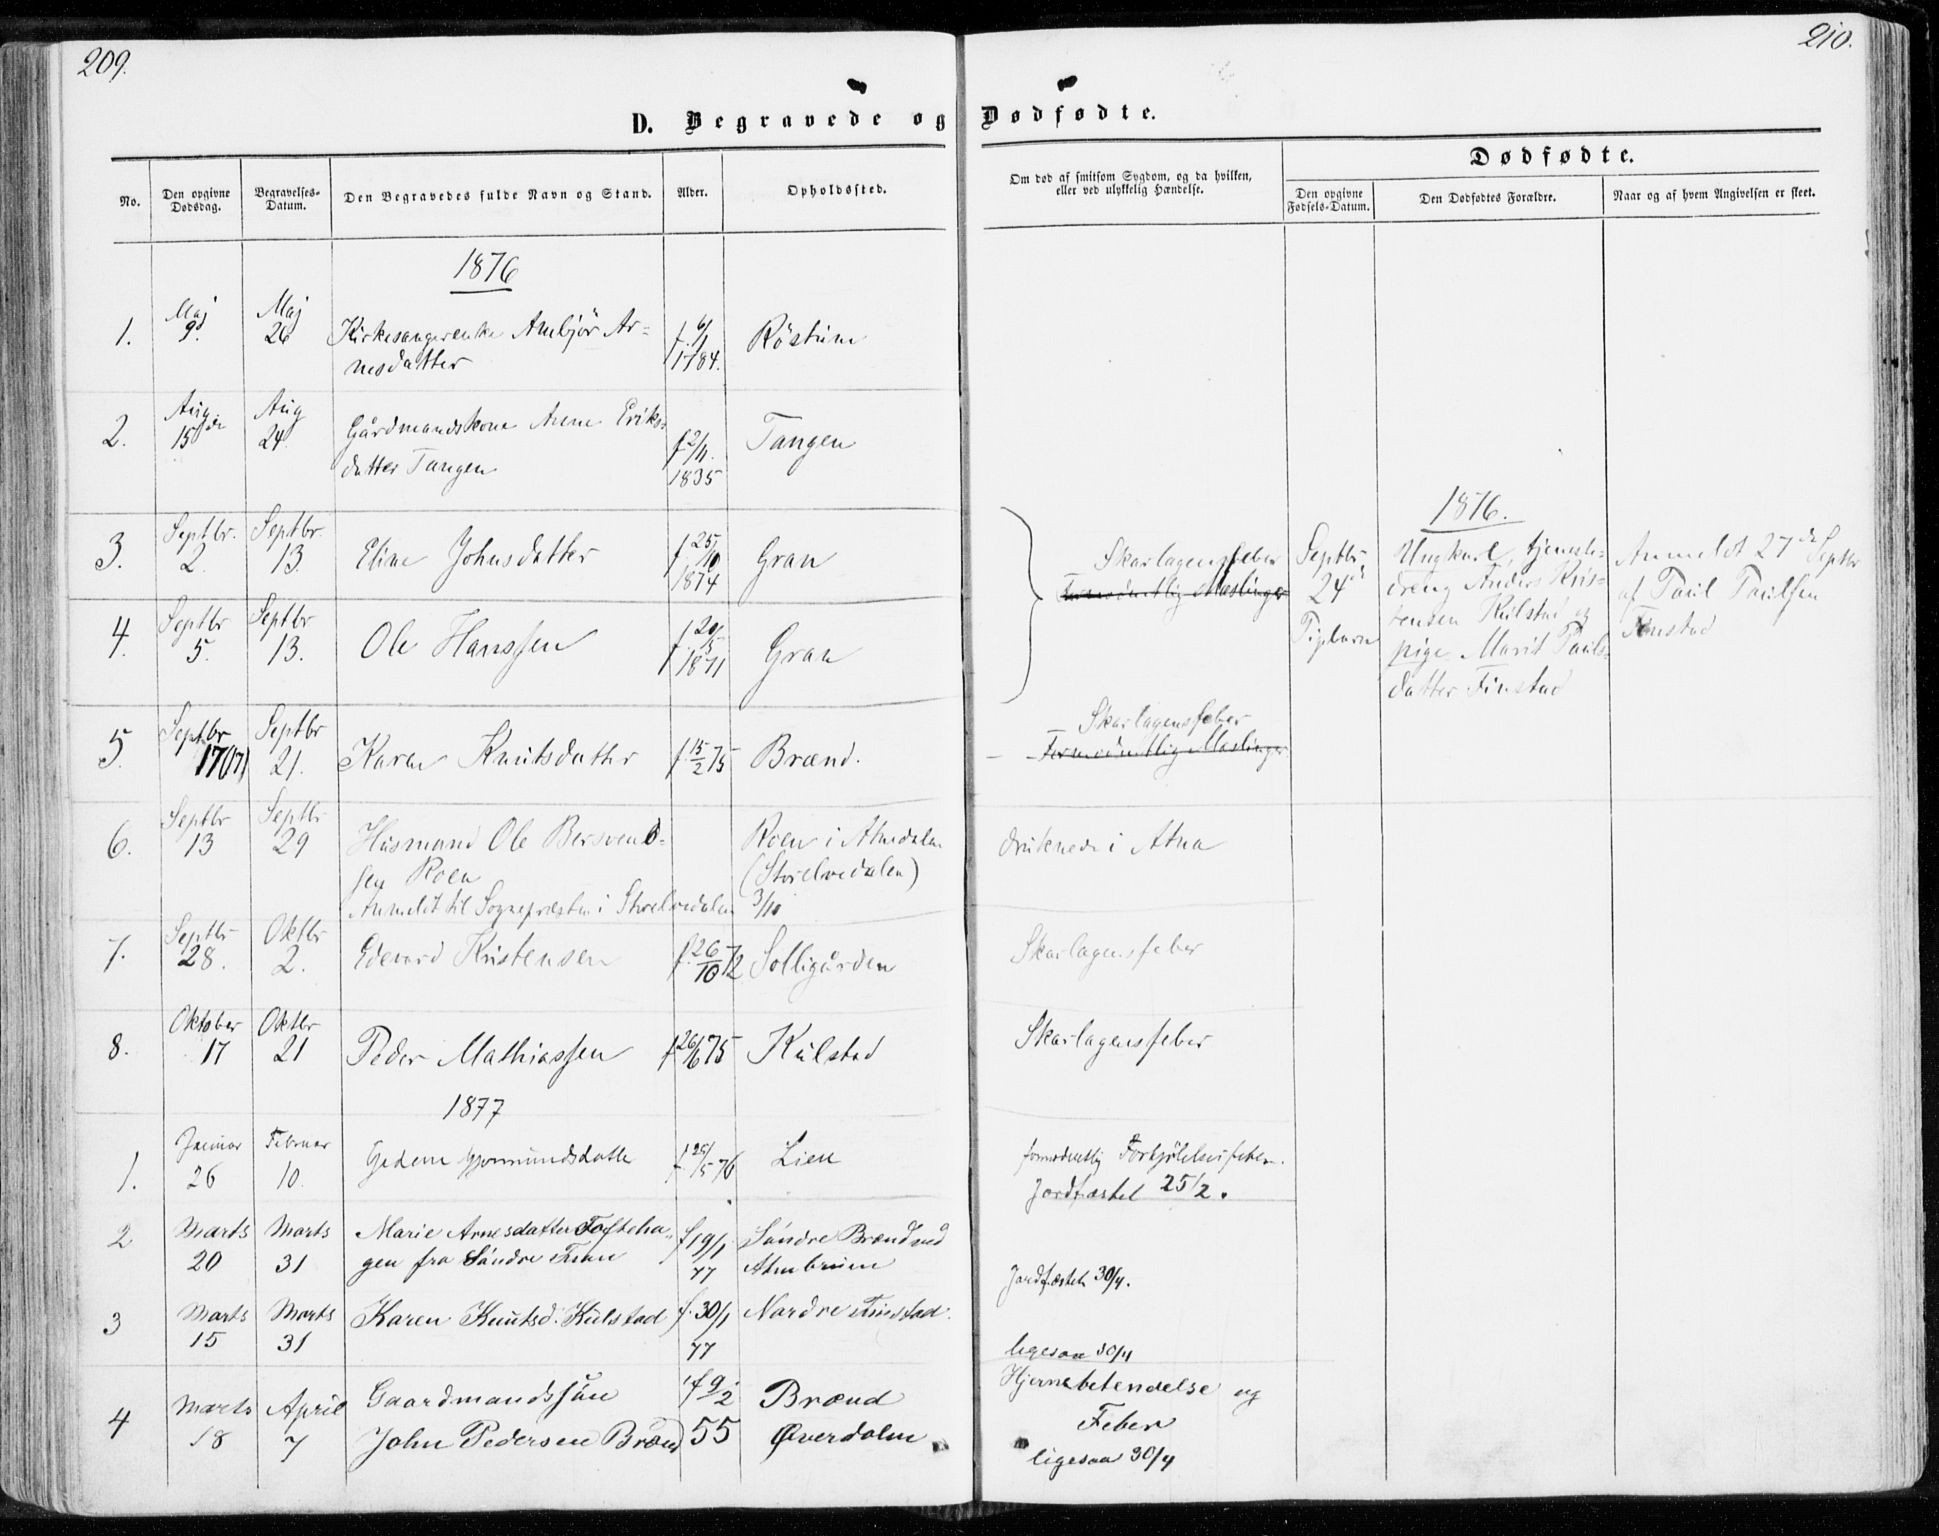 209.
210.
D. Begravede og Dødfødte.
No.
Den opgivne Dødsdag.
Begravelses-Datum.
Den Begravedes fulde Navn og Stand.
Alder.
Opholdssted.
Om død af smitsom Sygdom, og da hvilken,
eller ved ulykkelig Hændelse.
Dødfødte.
Den opgivne Fødsels-Datum.
Den Dødfødtes Forældre.
Naar og af hvem Angivelsen er skeet.
1876
1. Maj 9. Maj 26 Kirkesangerenke Ambjör Ar=
nesdatter f. 6/1 1784. Röstum
2. Aug 15de Aug 24 Gårdmandskone Anne Eriks=
datter Tangen f 2/11 1835 Tangen
3. Septbr. 2. Septbr. 13. Eline Johnsdatter f 25/10 1874 Gran
Skarlagensfeber
Formodentlig Mæslinger
4. Septbr 5. Septbr 13. Ole Hanssen f. 20/5 1871 Gran
1876.
Septbr 24de
Ungkarl, tjeneste=
dreng Anders Kris=
tensen Kulstad og
pige Marit Pauls=
datter Finstad
Anmeldt 27de Septbr
af Paul Paulsen
Finstad
5. Septbr 17(17) Septbr 21. Karen Knutsdatter f 15/2 75 Brænd.
Skarlagensfeber
Formodentlig Mæslinger
6. Septbr 13 Septbr 29 Husmand Ole Bersvend=
sen Roen
Roen i Atnedalen
(Storelvedalen)
druknede i Atna
Anmeldt til Sognepræsten i Storelvedalen 3/10
7. Septbr 28. Oktbr 2. Edevard Kristensen f. 26/10 72 Solligården
Skarlagensfeber
8. Oktober 17 Oktbr 21 Peder Mathiassen f 26/6 75 Kulstad
Skarlagensfeber
1877
1. Januar 26 Februar 10. Gjörmundsdatter 76 Lien
formodentlig Forkjölelsesfeber.
Jordfæstet 25/2.
2 Marts 20 Marts 31 Marie Arnesdatter Tofteha=
gen fra Söndre f 19/1 77 Söndre Brænd ved
Atnbruen
Jordfæstet 30/4.
3 Marts 15 Marts 31 Karen Knutsd. Kulstad f. 30/1 77 Nordre Finstad.
ligesaa 30/4
4 Marts 18 April 7 Gaardmandssön
John Pedersen Brænd f 9/2 55 Brænd
Øverdalen
Hjernebetendelse og
Feber
ligesaa 30/4